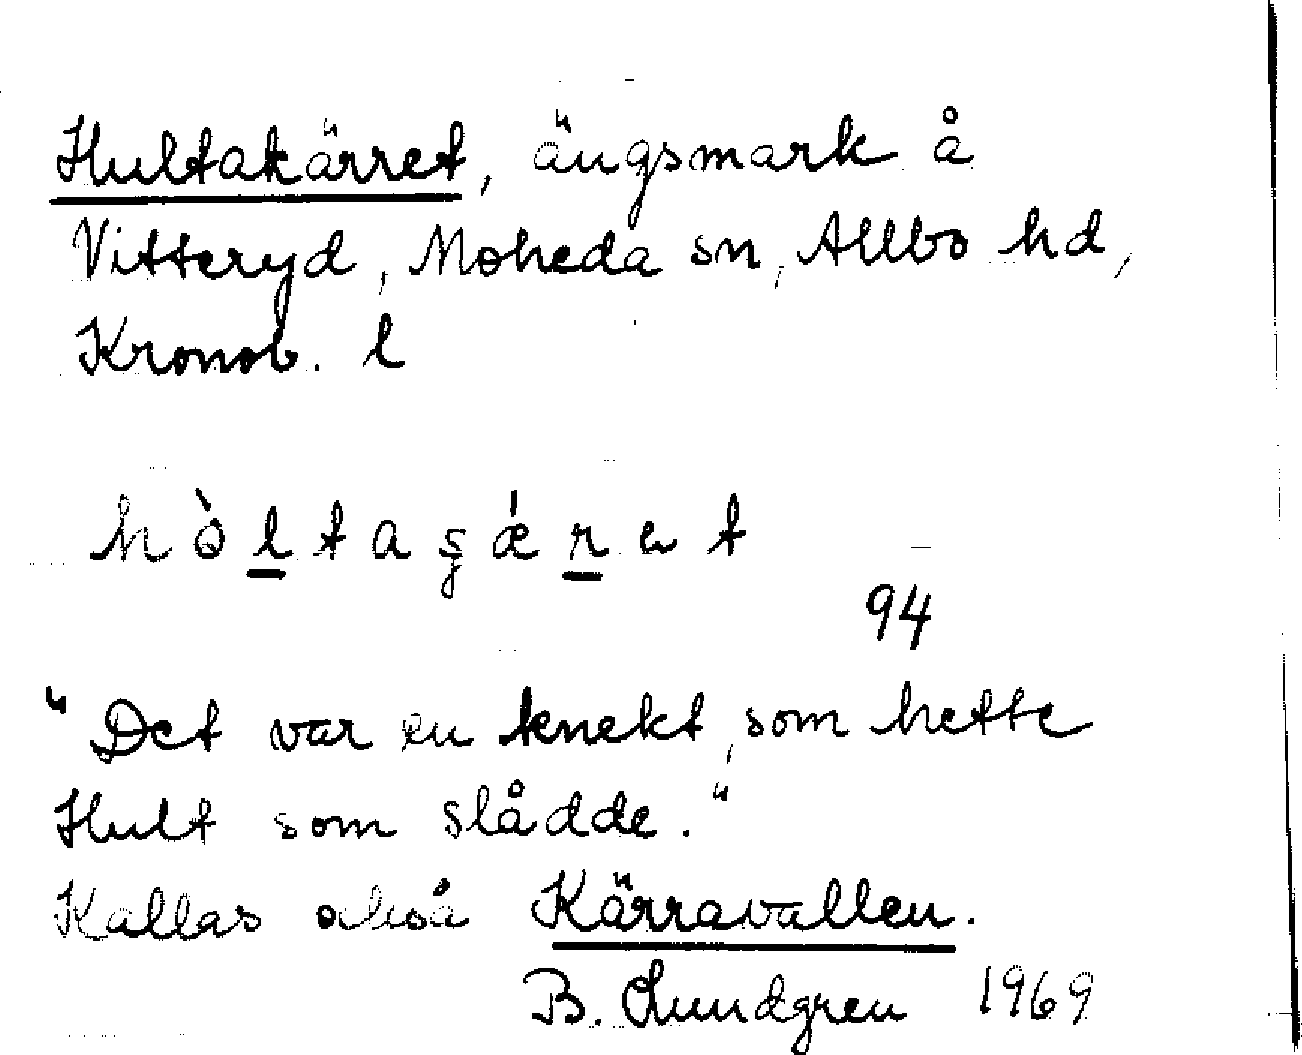 Hultakärret, ängsmark å
Vitteryd, Moheda sn, Allbo hd,
Kronob. l
hò̀ltaʂǽret
94
"Det var en knekt, som hette
Hult som slådde."
Kallas också Kärravallen.
B. Lundgren 1969